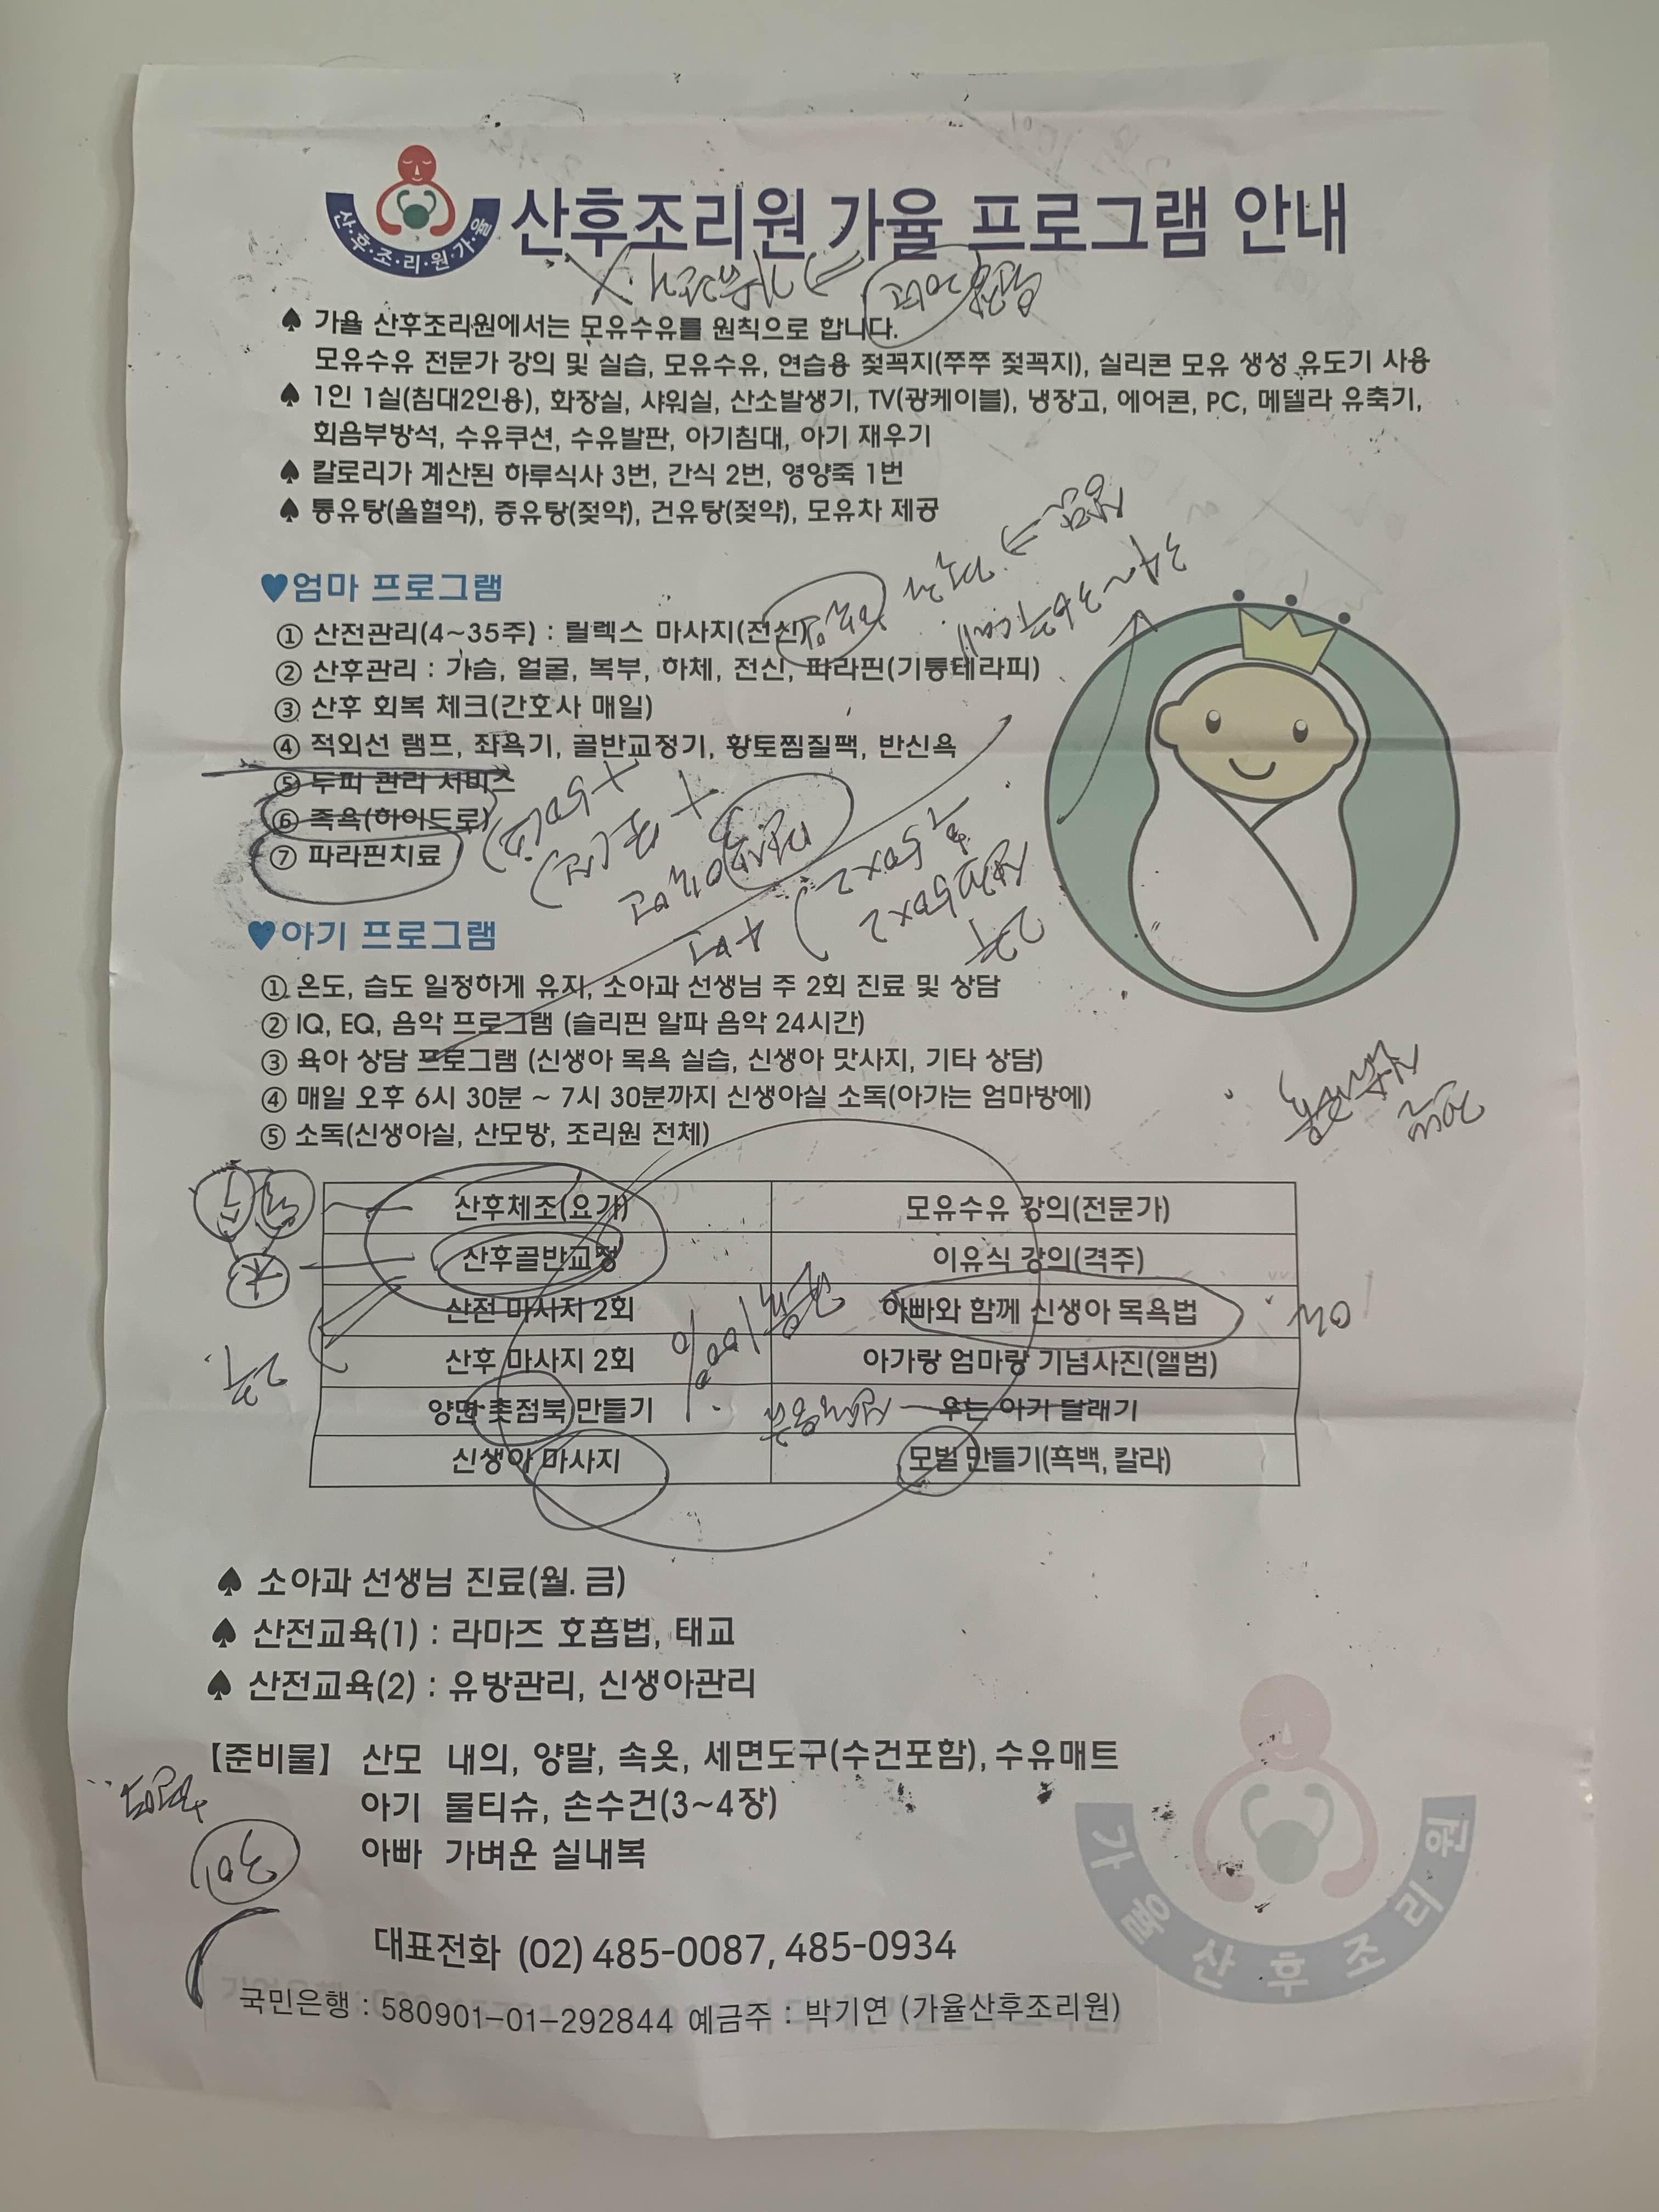 산·후·조·리·원·가·율
산후조리원 가율 프로그램 안내
♠ 가율 산후조리원에서는 모유수유를 원칙으로 합니다.
모유수유 전문가 강의 및 실습, 모유수유, 연습용 젖꼭지(쭈쭈 젖꼭지), 실리콘 모유 생성 유도기 사용
♠ 1인 1실(침대2인용), 화장실, 샤워실, 산소발생기, TV(광케이블), 냉장고, 에어콘, PC, 메델라 유축기,
회음부방석, 수유쿠션, 수유발판, 아기침대, 아기 재우기
♠ 칼로리가 계산된 하루식사 3번, 간식 2번, 영양죽 1번
♠ 통유탕(울혈약), 증유탕(젖약), 건유탕(젖약), 모유차 제공
♥엄마 프로그램
① 산전관리(4~35주) : 릴렉스 마사지(전신)
② 산후관리 : 가슴, 얼굴, 복부, 하체, 전신, 파라핀(기통테라피)
③ 산후 회복 체크(간호사 매일)
④ 적외선 램프, 좌욕기, 골반교정기, 황토찜질팩, 반신욕
⑤ 두피 관리 서비스
⑥ 족욕(하이드로)
⑦ 파라핀치료
♥아기 프로그램
① 온도, 습도 일정하게 유지, 소아과 선생님 주 2회 진료 및 상담
② IQ, EQ, 음악 프로그램 (슬리핀 알파 음악 24시간)
③ 육아 상담 프로그램 (신생아 목욕 실습, 신생아 맛사지, 기타 상담)
④ 매일 오후 6시 30분 ~ 7시 30분까지 신생아실 소독(아가는 엄마방에)
⑤ 소독(신생아실, 산모방, 조리원 전체)
산후체조(요가) 모유수유 강의(전문가)
산후골반교정 이유식 강의(격주)
산전 마사지 2회 아빠와 함께 신생아 목욕법
산후 마사지 2회 아가랑 엄마랑 기념사진(앨범)
양면 촛점북 만들기 우는 아기 달래기
신생아 마사지 모빌 만들기(흑백, 칼라)
100%
2주
♠ 소아과 선생님 진료(월. 금)
♠ 산전교육(1) : 라마즈 호흡법, 태교
♠ 산전교육(2) : 유방관리, 신생아관리
【준비물】 산모 내의, 양말, 속옷, 세면도구(수건포함), 수유매트
아기 물티슈, 손수건(3~4장)
아빠 가벼운 실내복
가율산후조리원
대표전화 (02) 485-0087, 485-0934
국민은행 : 580901-01-292844 예금주 : 박기연 (가율산후조리원)